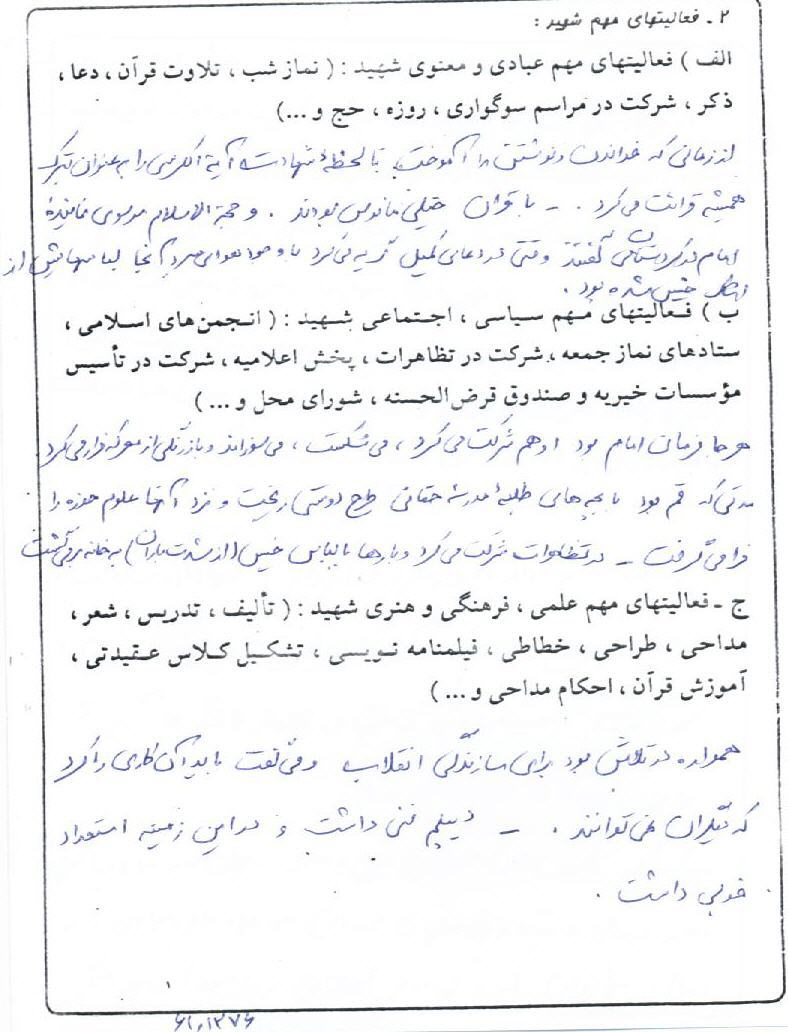 ۲ ـ فعالیتهای مهم شهید :
الف ) فعالیتهای مهم عبادی و معنوی شهید : ( نماز شب ، تلاوت قرآن ، دعا ،
ذکر ، شرکت در مراسم سوگواری ، روزه ، حج و ...)
از زمانی که خواندن و نوشتن را آموخت تا لحظهٔ شهادت آیة الکرسی را به عنوان تبرک
همیشه قرائت می کرد . ـ با قرآن خیلی مانوس بودند . و حجة الاسلام موسوی نمایندهٔ
امام در کردستان می گفتند وقتی در دعای کمیل گریه می کرد با وجود هوای سرد آنجا لباسهایش از
اشک خیس شده بود .
ب ) فعالیتهای مهم سیاسی ، اجتماعی شهید : ( انجمن‌های اسلامی ،
ستادهای نماز جمعه ، شرکت در تظاهرات ، پخش اعلامیه ، شرکت در تأسیس
مؤسسات خیریه و صندوق قرض‌الحسنه ، شورای محل و ... )
هر جا فرمان امام بود او هم شرکت می کرد ، می شکست ، می سوزاند و با زرنگی از معرکه فرار می کرد
مدتی که قم بود با بچه های طلبهٔ مدرسه حقانی طرح دوستی ریخت و نزد آنها علوم حوزه را
فرا می گرفت ـ در تظاهرات شرکت می کرد و بارها با لباس خیس (از شدت باران) به خانه بر می گشت
ج ـ فعالیتهای مهم علمی ، فرهنگی و هنری شهید : ( تألیف ، تدریس ، شعر ،
مداحی ، طراحی ، خطاطی ، فیلمنامه نویسی ، تشکیل کلاس عقیدتی ،
آموزش قرآن ، احکام مداحی و ... )
همواره در تلاش بود برای سازندگی انقلاب و می گفت باید آن کاری را کرد
که دیگران نمی توانند . ـ دیپلم فنی داشت و در این زمینه استعداد
خوبی داشت .